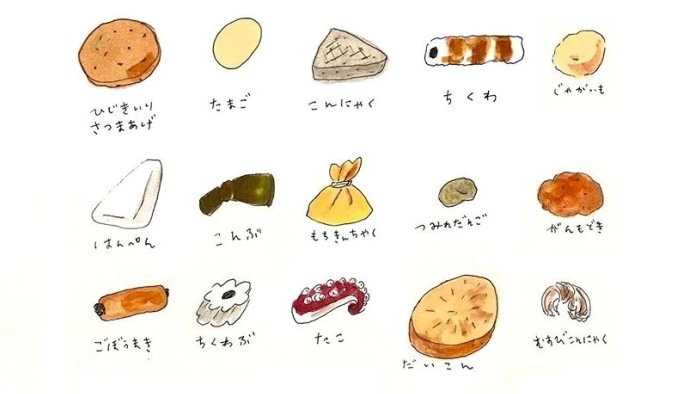 ひじきいり
さつまあげ
たまご
こんにゃく
ちくわ
じゃがいも
はんぺん
こんぶ
もちきんちゃく
つみれだんご
がんもどき
ごぼうまき
ちくわぶ
たこ
だいこん
むすびこんにゃく